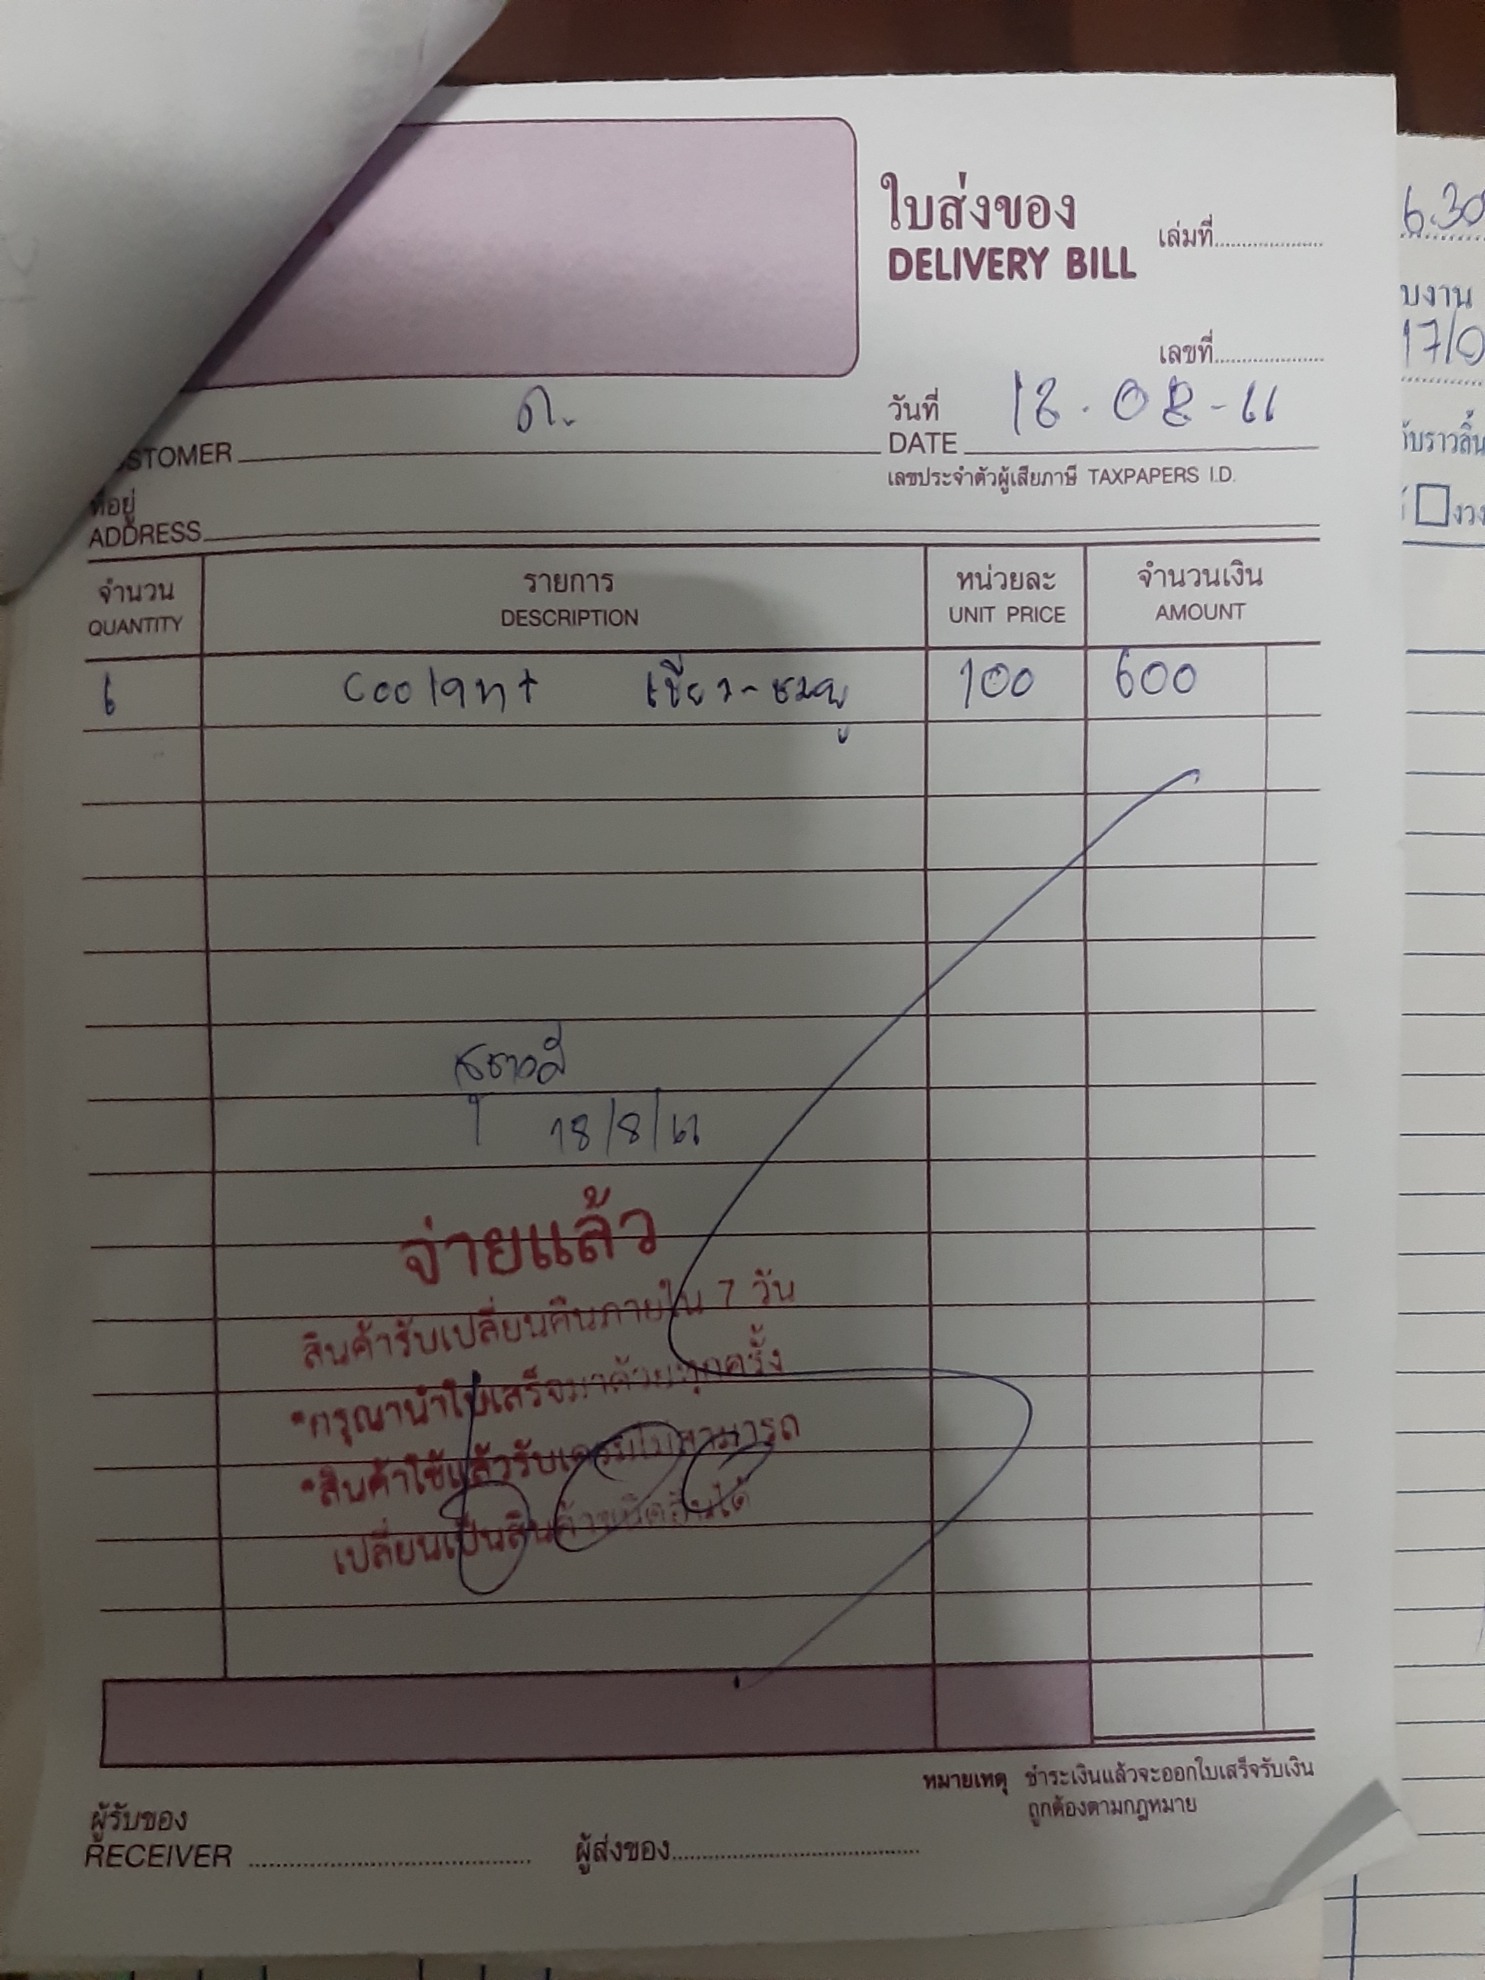 ใบส่งของ
DELIVERY BILL
เล่มที่
เลขที่
วันที่
DATE 18-08-61
STOMER
เลขประจำตัวผู้เสียภาษี TAXPAPERS I.D.
ที่อยู่
ADDRESS
จำนวน รายการ หน่วยละ จำนวนเงิน
QUANTITY DESCRIPTION UNIT PRICE AMOUNT
6 Coolant เขียว-ชมพู 100 600
18/8/61
จ่ายแล้ว
สินค้ารับเปลี่ยนคืนภายใน 7 วัน
*กรุณานำใบเสร็จมาด้วยทุกครั้ง
*สินค้าใช้แล้วรับเคลมไม่สามารถ
เปลี่ยนเป็นสินค้าชนิดอื่นได้
หมายเหตุ ชำระเงินแล้วจะออกใบเสร็จรับเงิน
ถูกต้องตามกฎหมาย
ผู้รับของ
RECEIVER
ผู้ส่งของ
6.30
บงาน
17/0